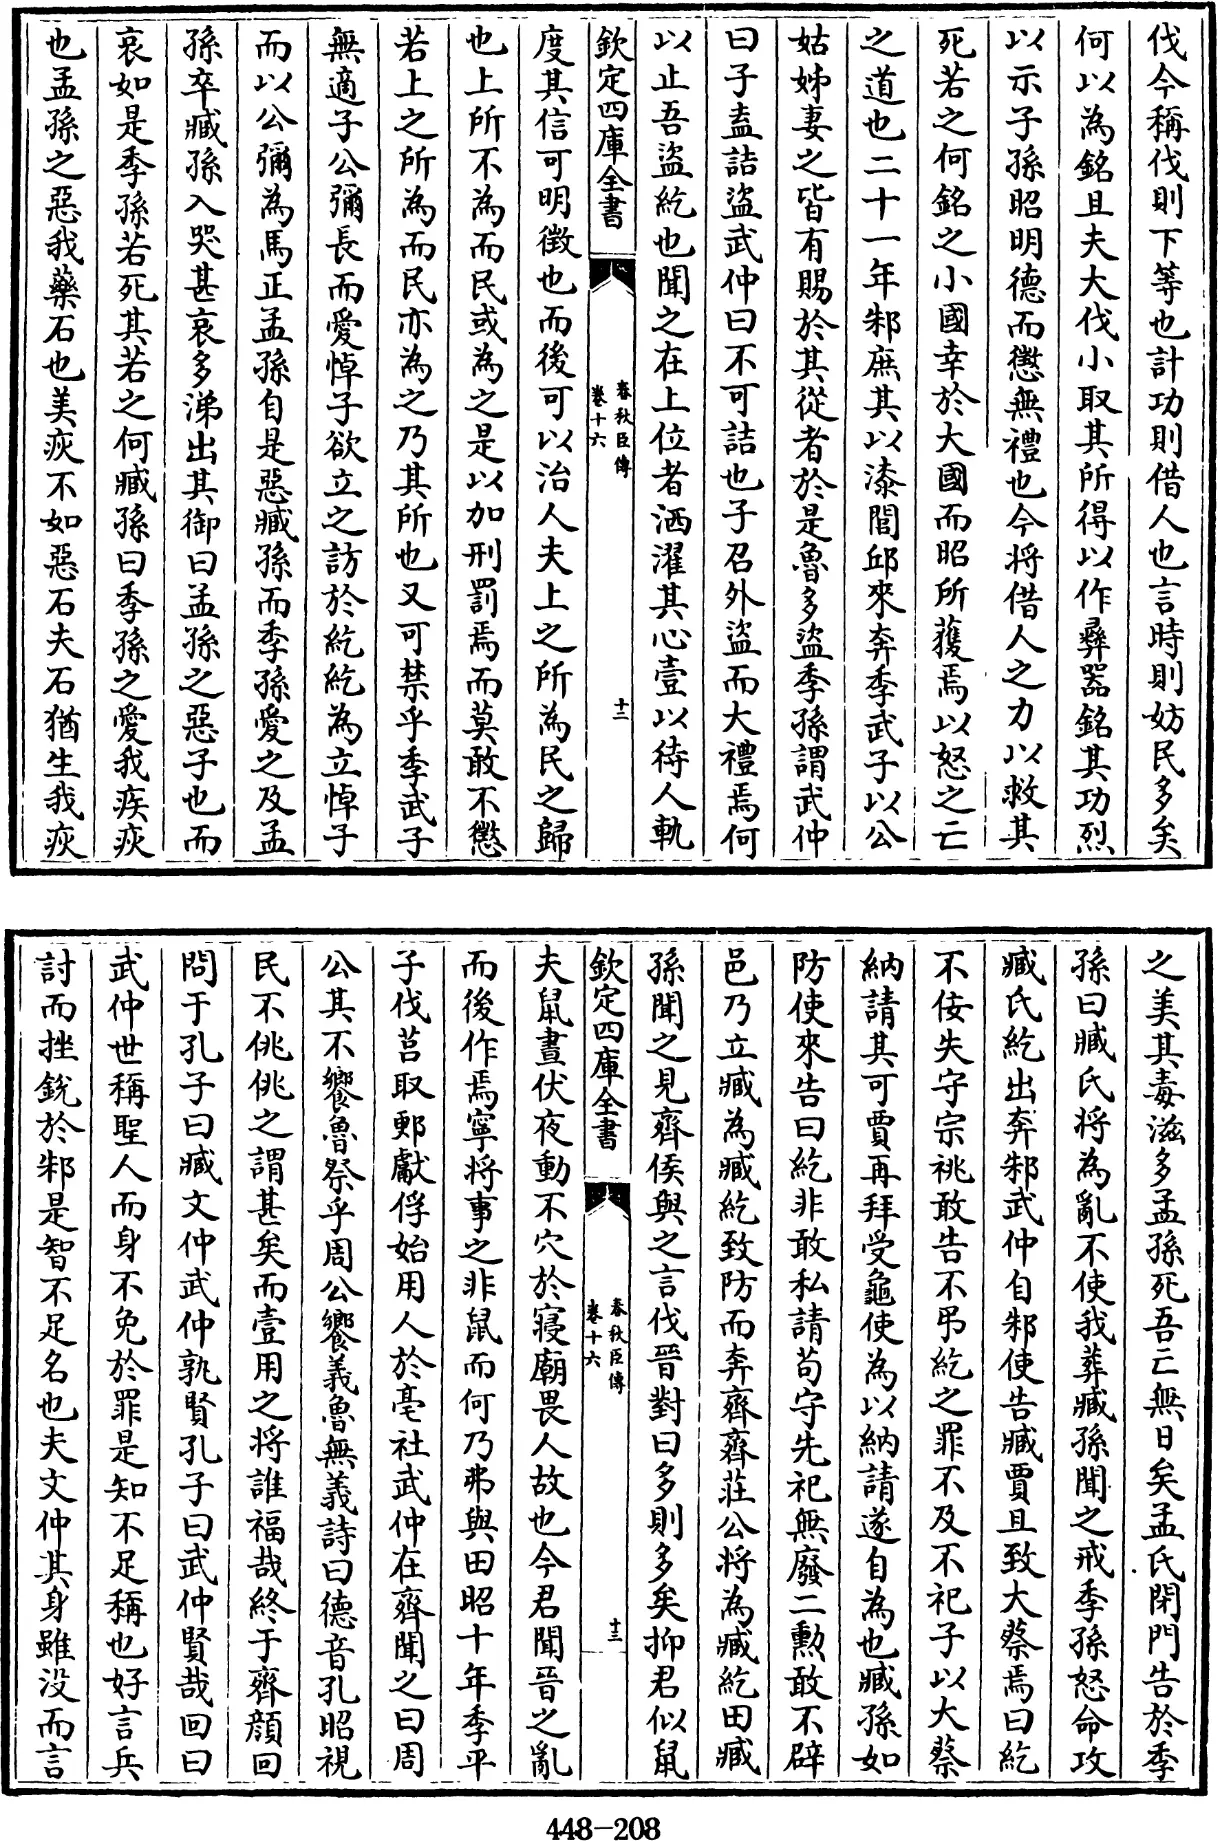 伐今稱伐則下等也計功則借人也言時則妨民多矣
何以為銘且夫大伐小取其所得以作彝器銘其功烈
以示子孫昭明德而懲無禮也今將借人之力以救其
死若之何銘之小國幸於大國而昭所獲焉以怒之亡
之道也二十一年邾庶其以漆閭邱來奔季武子以公
姑姊妻之皆有賜於其從者於是魯多盜季孫謂武仲
曰子盍詰盜武仲曰不可詰也子召外盜而大禮焉何
以止吾盜紇也聞之在上位者洒濯其心壹以待人軌
欽定四庫全書
春秋臣傳
卷十六
十二
度其信可明徵也而後可以治人夫上之所為民之歸
也上所不為而民或為之是以加刑罰焉而莫敢不懲
若上之所為而民亦為之乃其所也又可禁乎季武子
無適子公彌長而愛悼子欲立之訪於紇紇為立悼子
而以公彌為馬正孟孫自是惡臧孫而季孫愛之及孟
孫卒臧孫入哭甚哀多涕出其御曰孟孫之惡子也而
哀如是季孫若死其若之何臧孫曰季孫之愛我疾疢
也孟孫之惡我藥石也美疢不如惡石夫石猶生我疢
之美其毒滋多孟孫死吾亡無日矣孟氏閉門告於季
孫曰臧氏將為亂不使我葬臧孫聞之戒季孫怒命攻
臧氏紇出奔邾武仲自邾使告臧賈且致大蔡焉曰紇
不佞失守宗祧敢告不弔紇之罪不及不祀子以大蔡
納請其可賈再拜受龜使為以納請遂自為也臧孫如
防使來告曰紇非敢私請苟守先祀無廢二勲敢不辟
邑乃立臧為臧紇致防而奔齊齊莊公將為臧紇田臧
孫聞之見齊侯與之言伐晉對曰多則多矣抑君似鼠
欽定四庫全書
春秋臣傳
卷十六
十三
夫鼠晝伏夜動不穴於寢廟畏人故也今君聞晉之亂
而後作焉寧將事之非鼠而何乃弗與田昭十年季平
子伐莒取郠獻俘始用人於亳社武仲在齊聞之曰周
公其不饗魯祭乎周公饗義魯無義詩曰德音孔昭視
民不佻佻之謂甚矣而壹用之將誰福哉終于齊顔回
問于孔子曰臧文仲武仲孰賢孔子曰武仲賢哉回曰
武仲世稱聖人而身不免於罪是知不足稱也好言兵
討而挫銳於邾是智不足名也夫文仲其身雖没而言
448-208